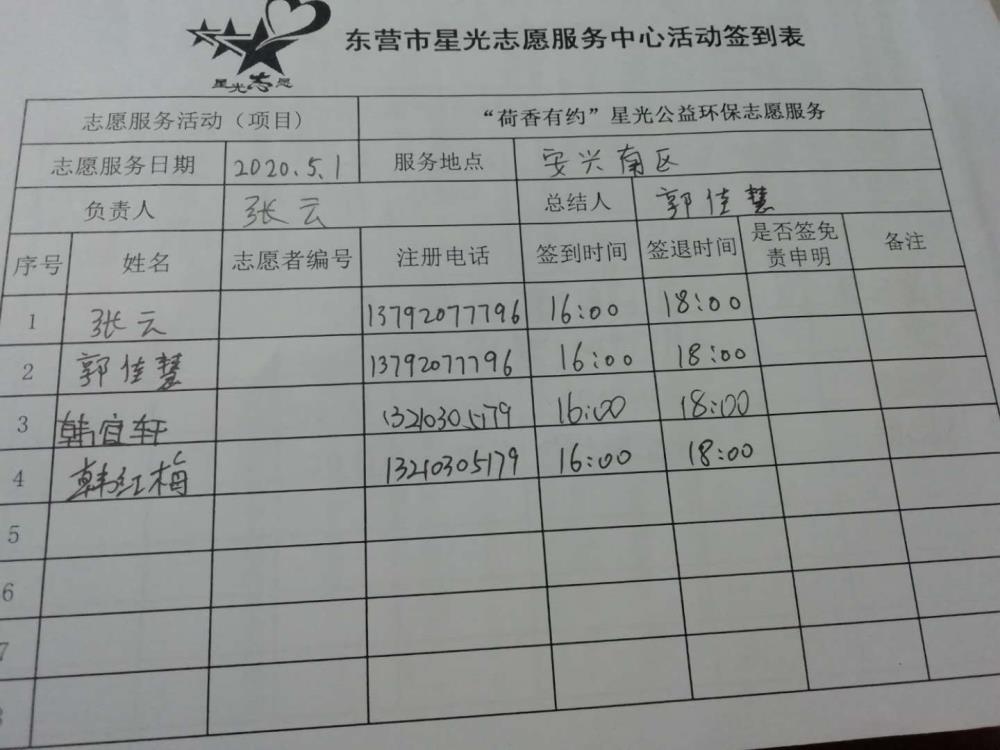 东营市星光志愿服务中心活动签到表
星光志愿
志愿服务活动（项目） “荷香有约”星光公益环保志愿服务
志愿服务日期 2020.5.1 服务地点 安兴南区
负责人 张云 总结人 郭佳慧
序号 姓名 志愿者编号 注册电话 签到时间 签退时间 是否签免责申明 备注
1 张云 13792077796 16:00 18:00
2 郭佳慧 13792077796 16:00 18:00
3 韩宜轩 13210305179 16:00 18:00
4 韩红梅 13210305179 16:00 18:00
5
6
7